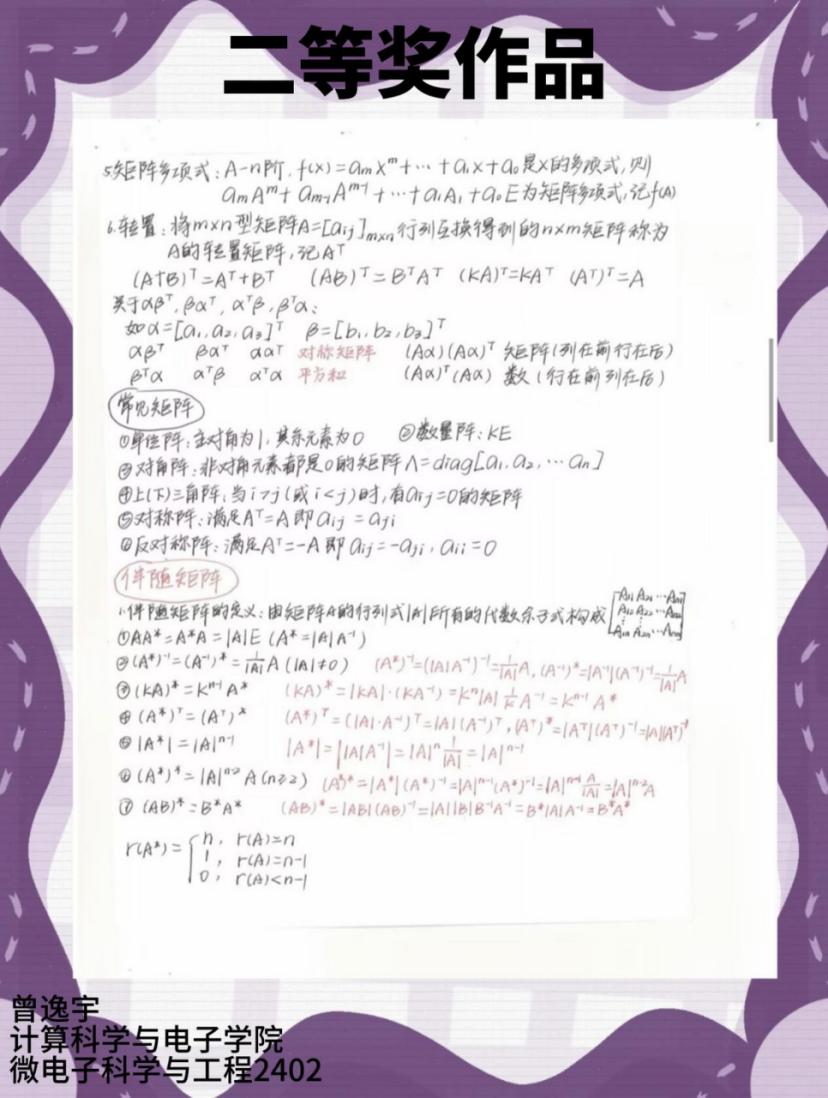 二等奖作品
5.矩阵多项式：A-n阶，f(x)=aₘxᵐ+…+a₁x+a₀是x的多项式，则
aₘAᵐ+aₘ₋₁Aᵐ⁻¹+…+a₁A₁+a₀E为矩阵多项式，记f(A)
6.转置：将m×n型矩阵A=[aij]m×n行列互换得到的n×m矩阵称为
A的转置矩阵，记Aᵀ
(A+B)ᵀ=Aᵀ+Bᵀ (AB)ᵀ=BᵀAᵀ (KA)ᵀ=KAᵀ (Aᵀ)ᵀ=A
关于αβᵀ, βαᵀ, αᵀβ, βᵀα：
如α=[a₁,a₂,a₃]ᵀ β=[b₁,b₂,b₃]ᵀ
αβᵀ βαᵀ ααᵀ 对称矩阵 (Aα)(Aα)ᵀ 矩阵(列在前行在后)
βᵀα αᵀβ αᵀα 平方和 (Aα)ᵀ(Aα) 数(行在前列在后)
常见矩阵
①单位阵：主对角为1，其余元素为0 ②数量阵：KE
③对角阵：非对角元素都是0的矩阵Λ=diag[a₁,a₂,…an]
④上(下)三角阵：当i>j(或i<j)时，有aij=0的矩阵
⑤对称阵：满足Aᵀ=A即aij=aji
⑥反对称阵：满足Aᵀ=-A即aij=-aji，aii=0
伴随矩阵
1.伴随矩阵的定义：由矩阵A的行列式|A|所有的代数余子式构成[A₁₁ A₂₁ …An₁ A₁₂ A₂₂ …An₂ A₁n A₂n …Ann]
①AA*=A*A=|A|E (A*=|A|A⁻¹)
②(A*)⁻¹=(A⁻¹)*=1/|A| A (|A|≠0) (A*)⁻¹=(|A|A⁻¹)⁻¹=1/|A| A, (A⁻¹)*=|A⁻¹|(A⁻¹)⁻¹=1/|A| A
③(KA)*=Kⁿ⁻¹A* (KA)*=|KA|·(KA⁻¹)=Kⁿ|A| 1/K A⁻¹=Kⁿ⁻¹A*
④(A*)ᵀ=(Aᵀ)* (A*)ᵀ=(|A|·A⁻¹)ᵀ=|A|(A⁻¹)ᵀ, (Aᵀ)*=|Aᵀ|(Aᵀ)⁻¹=|A|(Aᵀ)⁻¹
⑤|A*|=|A|ⁿ⁻¹ |A*|=||A|A⁻¹|=|A|ⁿ 1/|A|=|A|ⁿ⁻¹
⑥(A*)*=|A|ⁿ⁻²A(n≥2) (A*)*=|A*|(A*)⁻¹=|A|ⁿ⁻¹(A*)⁻¹=|A|ⁿ⁻¹ A/|A|=|A|ⁿ⁻²A
⑦(AB)*=B*A* (AB)*=|AB|(AB)⁻¹=|A||B|B⁻¹A⁻¹=B*|A|A⁻¹=B*A*
r(A*)={n, r(A)=n
1, r(A)=n-1
0, r(A)<n-1
曾逸宇
计算科学与电子学院
微电子科学与工程2402